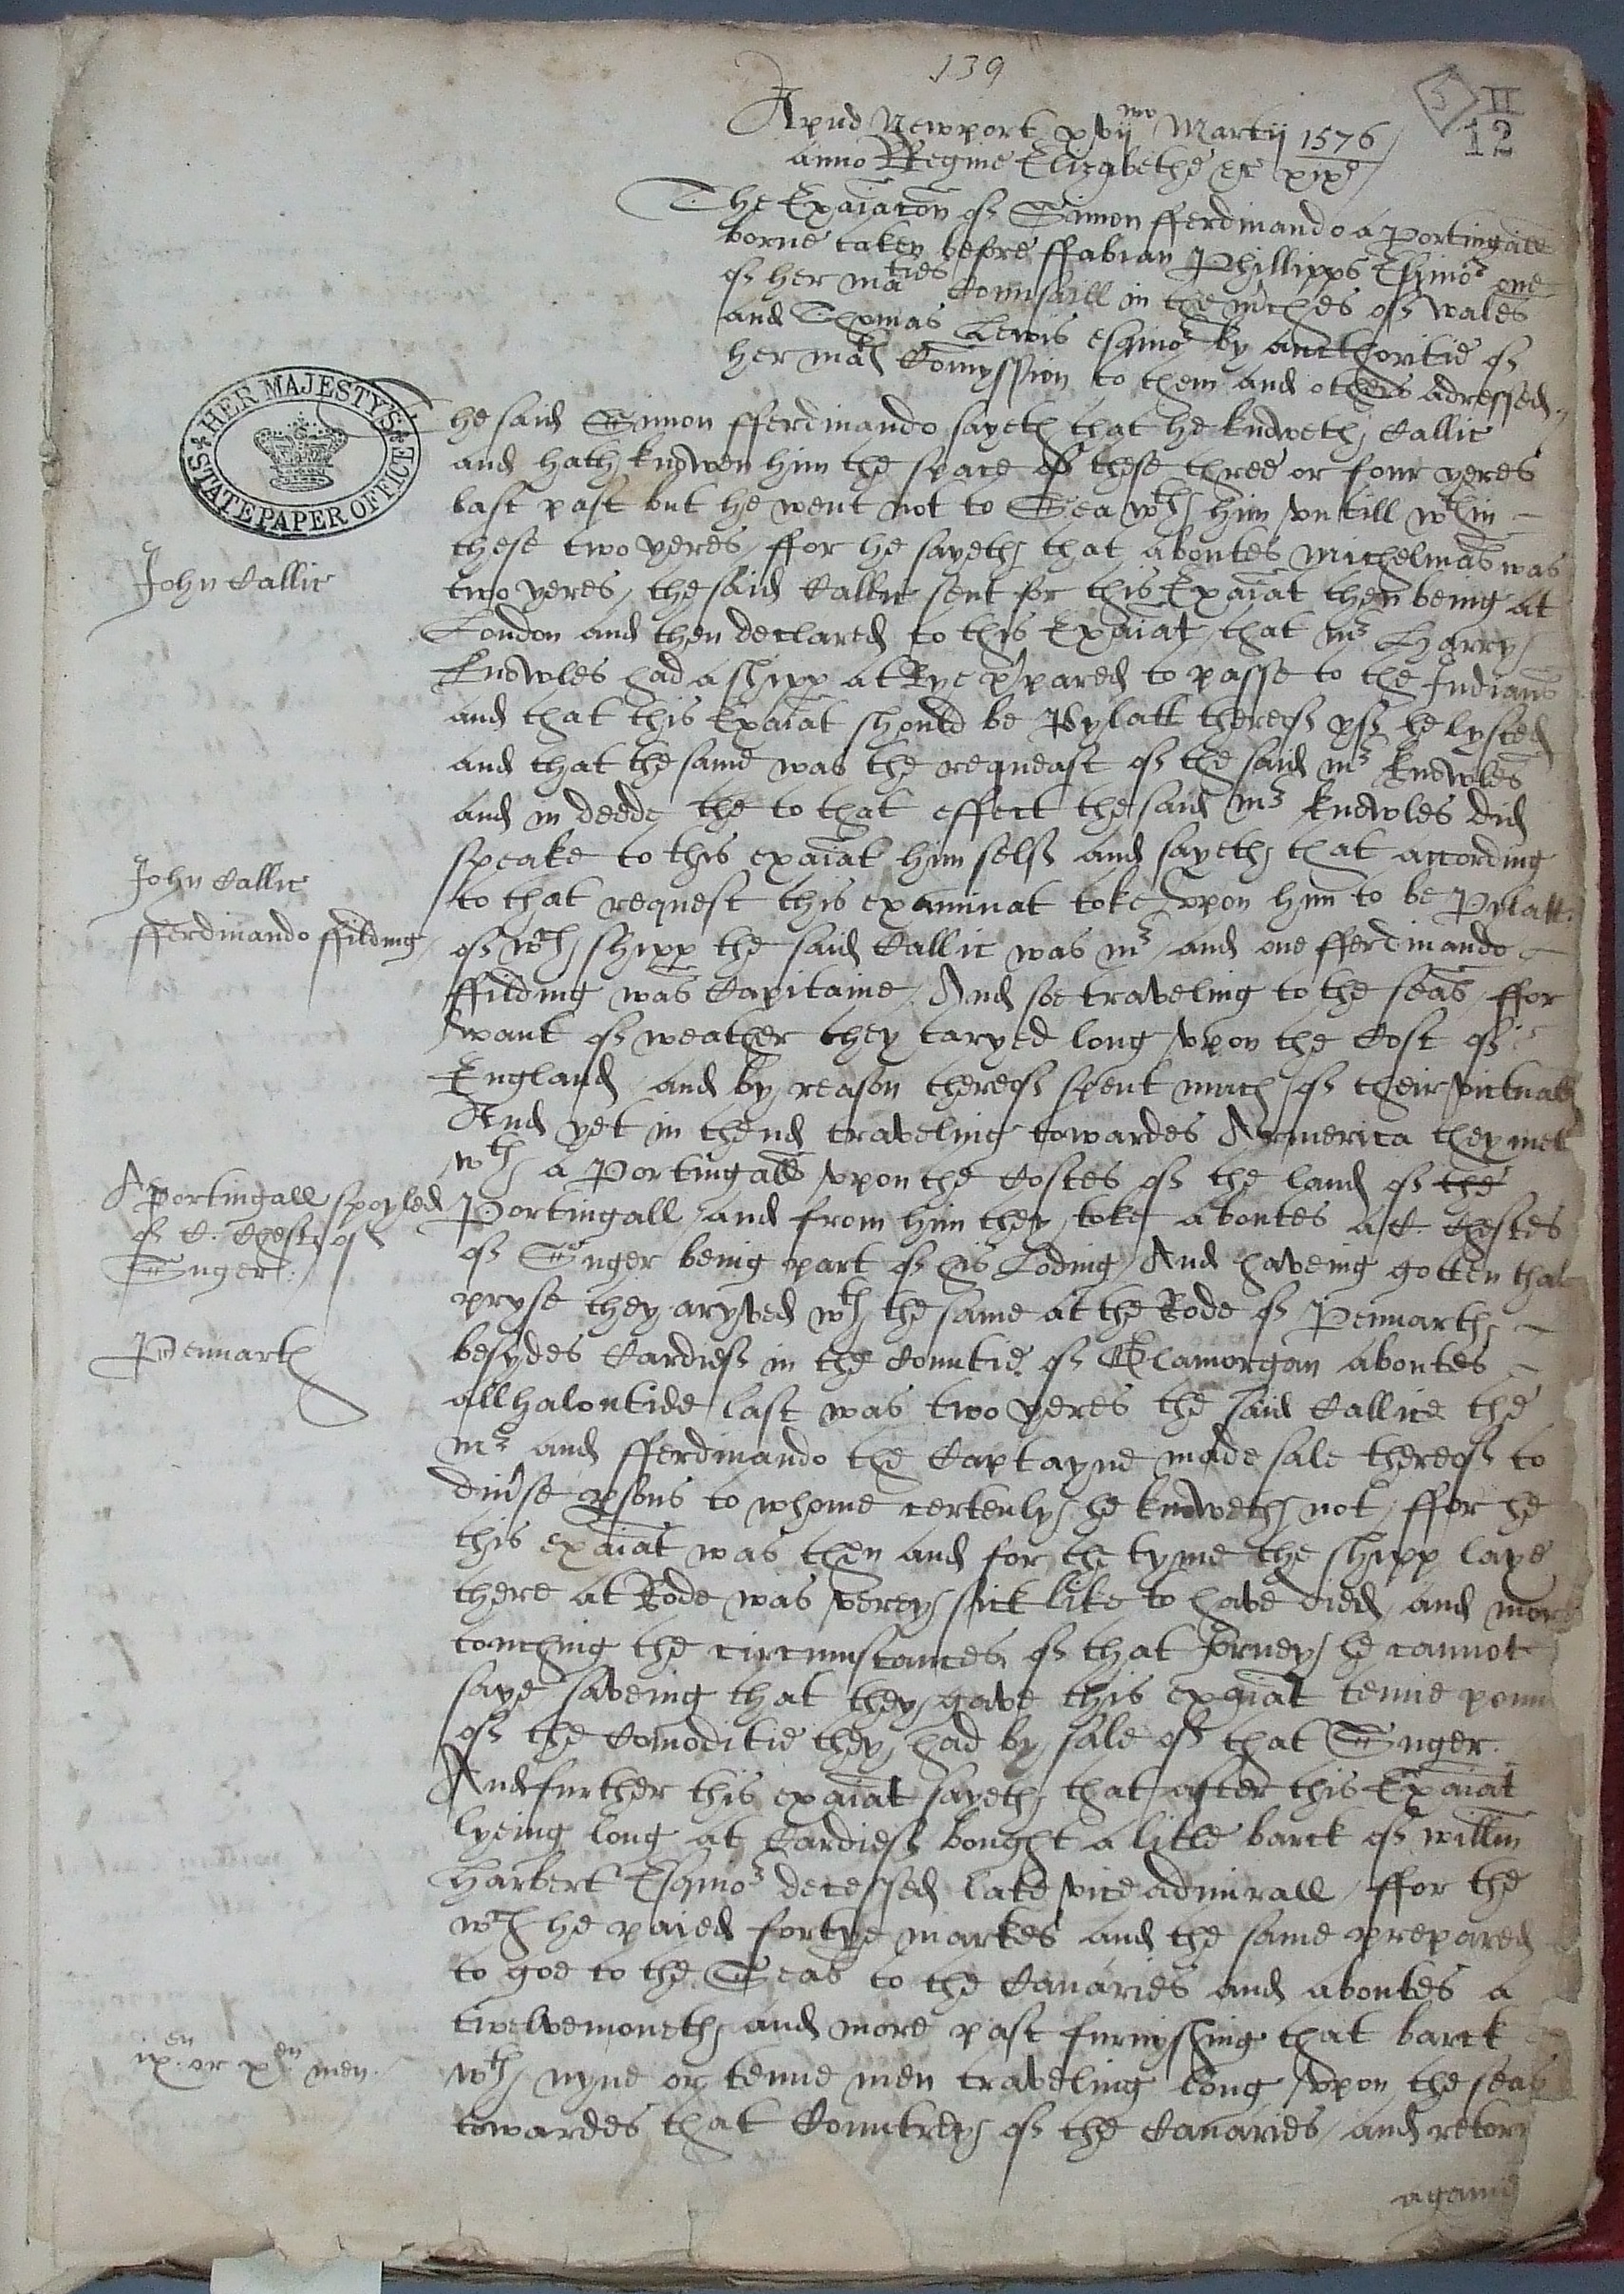 139
5 II
12
Apud Newport xvijmo Martij 1576
anno Regine Elizabethe &c xixo
The Exaiacon of Simon fferdinando a Portingall
borne taken before ffabian Phillipps Esquior one
of her maties Counsaill in the mches of Wales
and Thomas Lewis esquior by aucthoritie of
her mats Comyssion to them and others adressed
HER MAJESTY'S
STATE PAPER OFFICE
he said Simon fferdinando sayeth that he knoweth Callic
and hath knowen him the space of these three or four yeres
last past but he went not to Sea wth him untill wthin
these two yeres, ffor he sayeth that aboutes Michelmas was
John Callic
two yeres, the said Callic sent for this Exaiat then being at
London and then declared to this Exaiat, that mr Harry
Knowles had a shipp at Rye ppared to passe to the Indians
and that this Exaiat should be Pylatt thereof yf he lysted
and that the same was the requeast of the said mr Knowles
and in deede the to that effect the said mr Knowles did
speake to this exaiat him self and sayeth that according
John Callic
to that request this examinat toke upon him to be Pylatt
fferdinando ffilding
of wch shipp the said Callic was mr and one fferdinando
ffilding was Capitaine, And soe traveling to the seas, ffor
want of weather they taryed long upon the Cost of
England, and by reason thereof spent much of their victuall
And yet in thend traveling towardes Armerica they met
wth a Portingall upon the Costes of the land of the
A Portingall spoyled
Portingall, and from him they toke aboutes a C. Chestes
of C. Chestes of
Suger
of Suger being part of his Loding, And haveing gotten that
pryse they aryved wth the same at the Rode of Pennarth
Pennarth
besydes Cardief in the Countie of Glamorgan aboutes
allhalontide last was two yeres the said Callice the
mr and fferdinando the Captayne made sale thereof to
divrse psons to whome certenly he knoweth not, ffor he
this exaiat was then and for the tyme the shipp laye
there at Rode was verey sick like to have died, and more
touching the circumstances of that Jorney he cannot
saye, saveing that they gave this exaiat tenne poun
of the Comoditie they had by sale of that Suger.
And further this exaiat sayeth that after this Exaiat
lyeing long at Cardief bought a litle barck of Willm
Harbert Esquior decessed late vice admirall, ffor the
wch he paied fortye markes and the same prepared
to goe to the Seas to the Canaries and aboutes a
twelvemoneth and more past furnyshing that barck
ixen or xen men
wth nyne or tenne men traveling long upon the seas
towardes that Countrey of the Canaries, and retor
againe